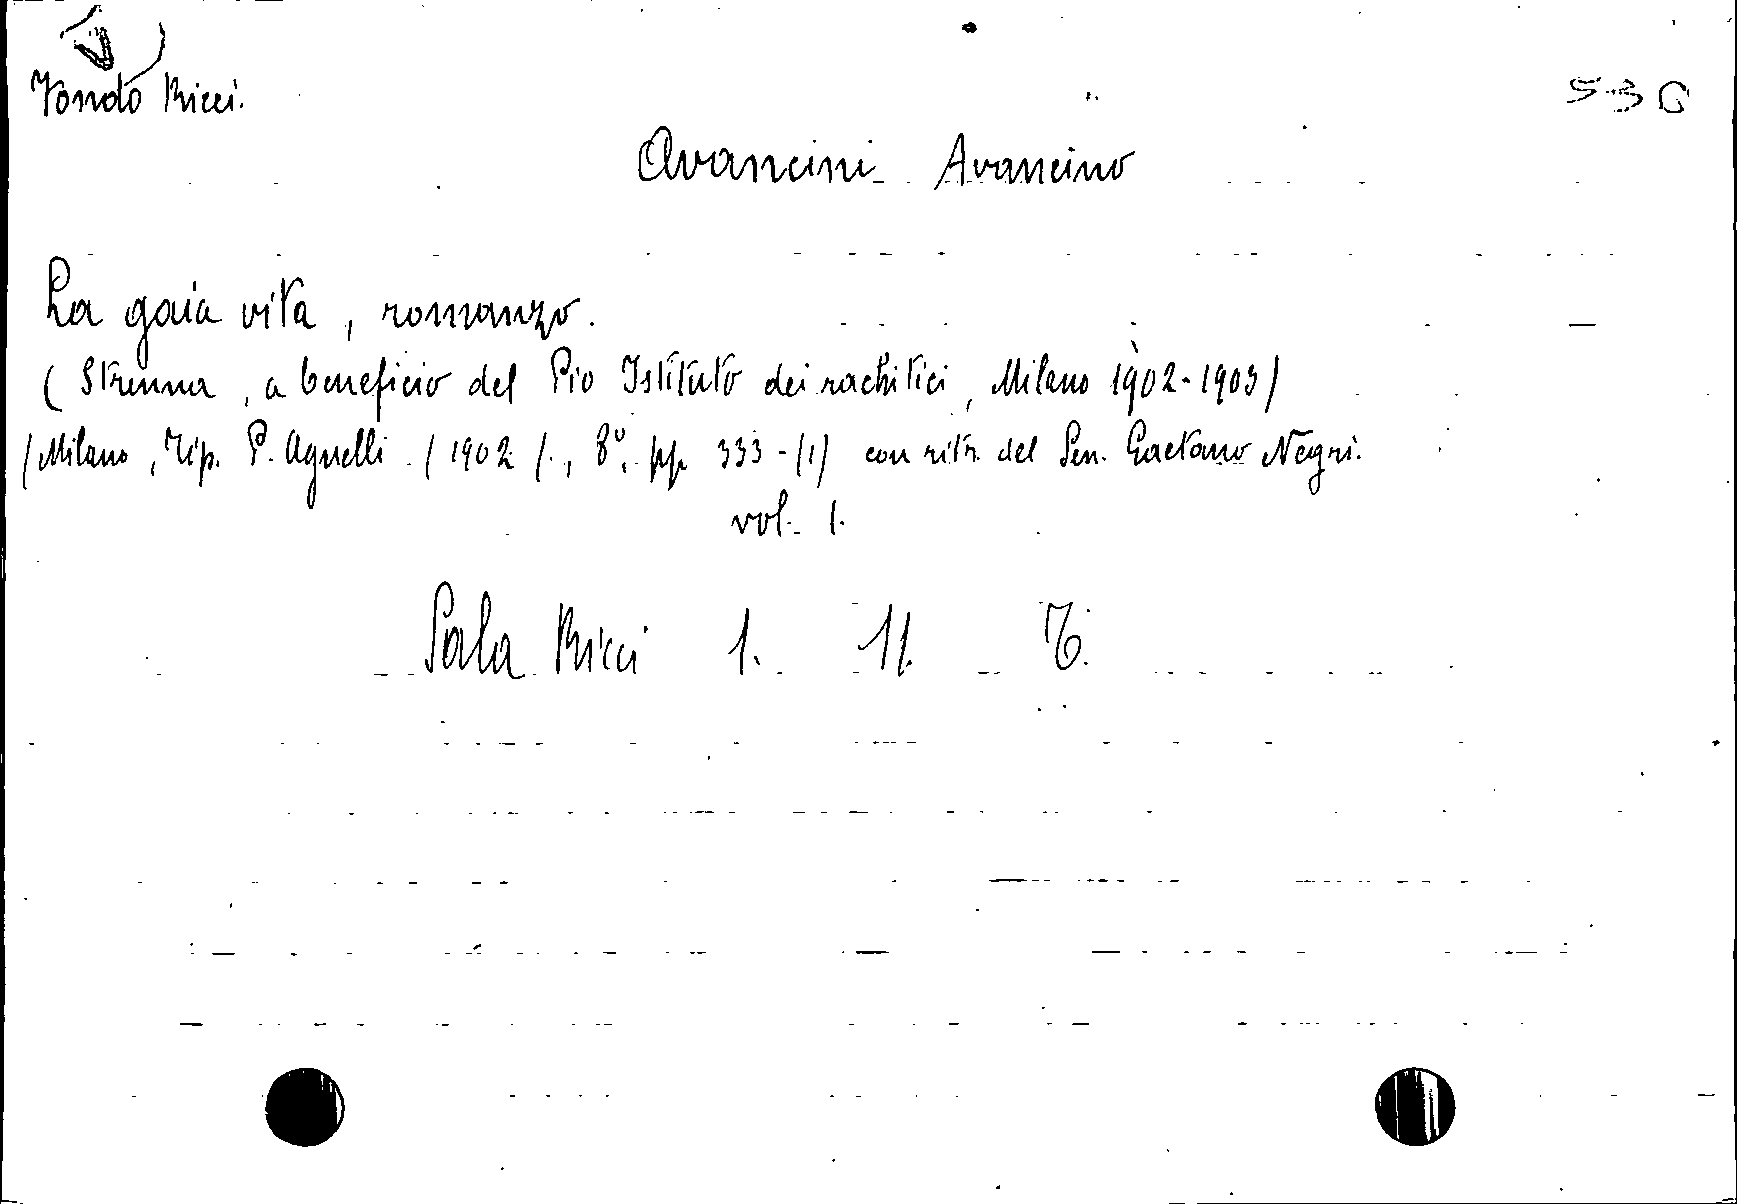 Fondo Ricci.
536
Avancini Avancino
La gaia vita, romanzo.
(Strenna, a beneficio del Pio Istituto dei rachitici, Milano 1902-1903)
(Milano, Tip. P. Agnelli (1902)., 8°. pp. 333-(1) con ritr. del Sen. Gaetano Negri.
vol. 1.
Sala Ricci 1. 11. 6.